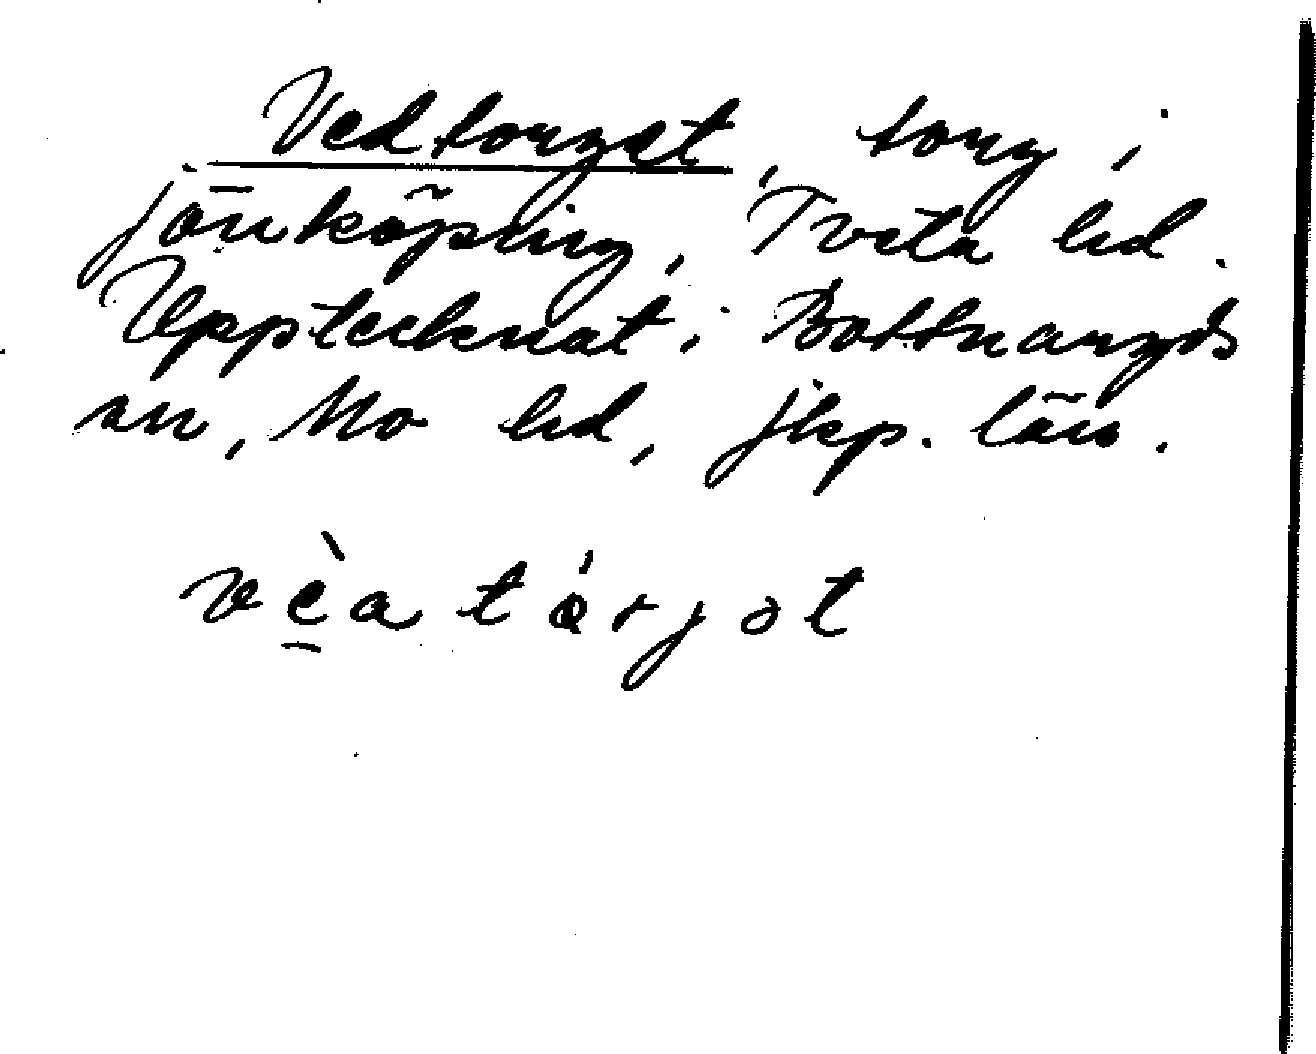 Vedtorget, torg i
Jönköping, Tveta hd.
Upptecknat i Bottnaryds
sn, Mo hd, Jkp. län.
vèa tórjət